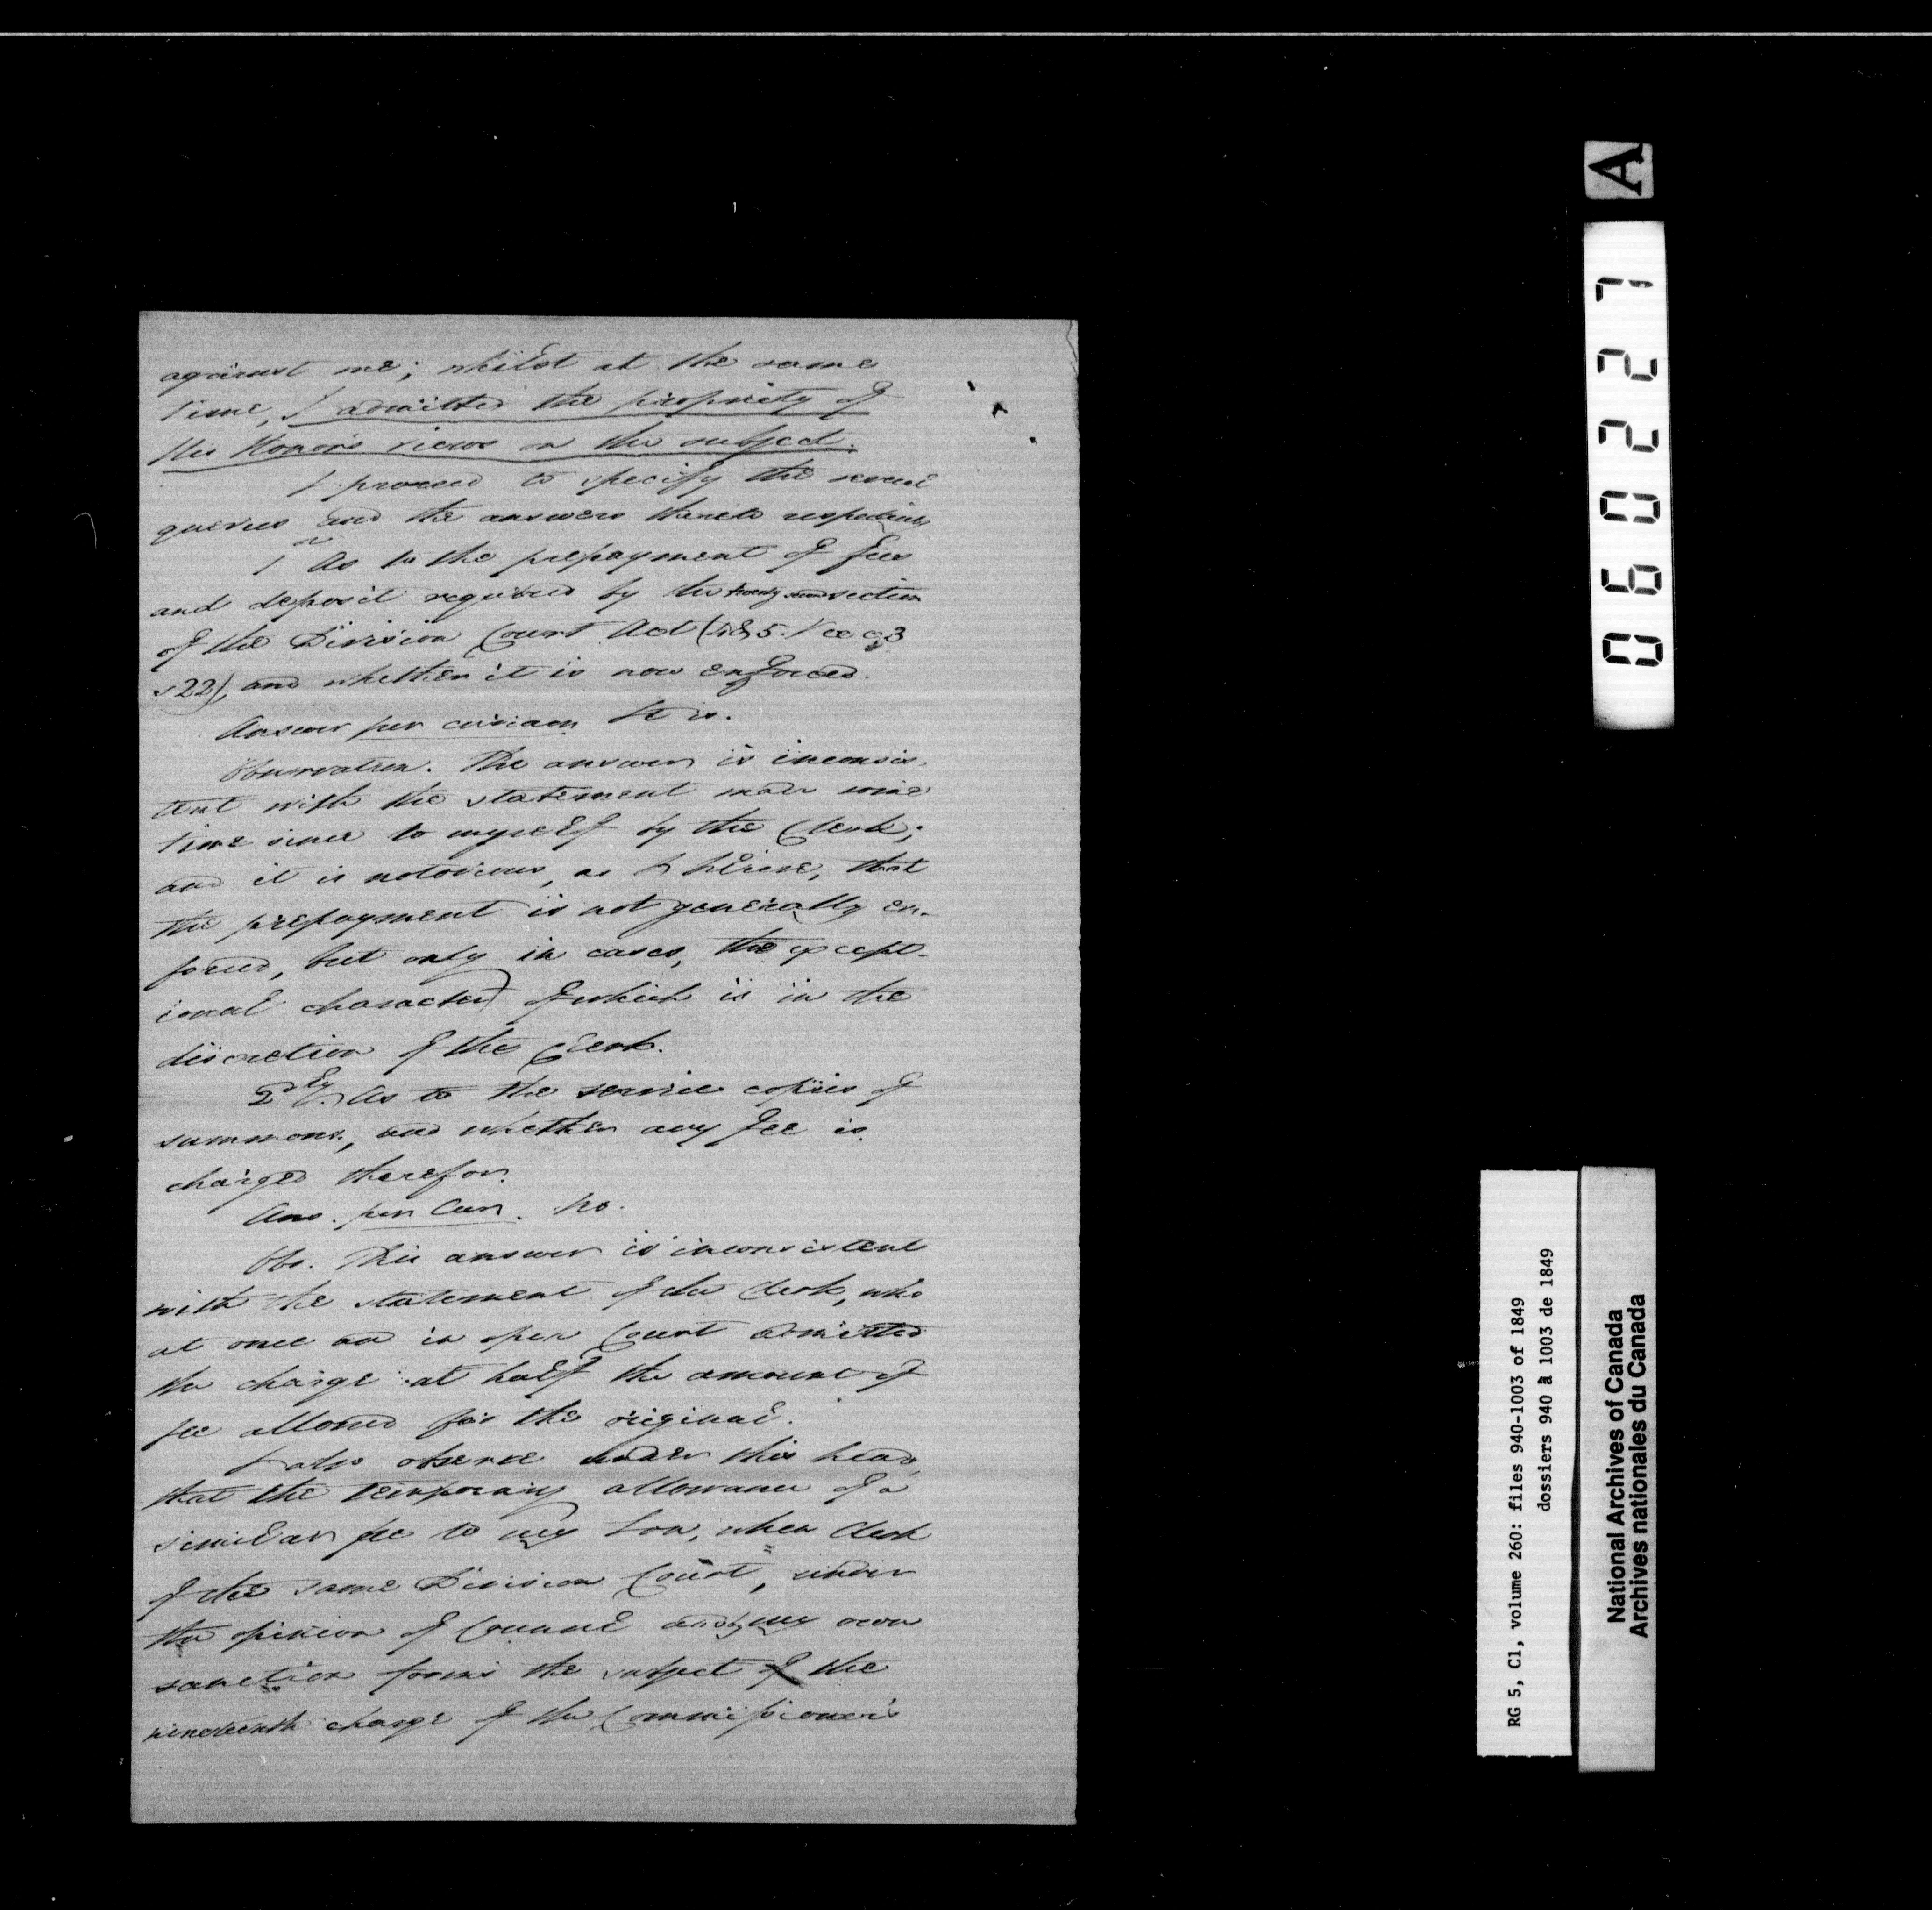 against me; whilst at the same
time, I admitted the propriety of
His Honor's views on the subject.
I proceed to specify the several
queries and the answers thereto respecting
1 As to the prepayment of fees
and deposit required by the twenty second section
of the Division Court Act (4 & 5. Vic c 3
s 22), and whether it is now enforced.
Answer per curiam It is.
Observation. The answer is inconsis-
tent with the statement made some
time since to myself by the Clerk;
and it is notorious, as I believe, that
the prepayment is not generally en-
forced, but only in cases, the except-
ional character of which is in the
discretion of the Clerk.
2dly. As to the service copies of
summons, and whether any fee is
charged therefor.
Ans. per Cur. No.
Obs. This answer is inconsistent
with the statement of the Clerk, who
at once and in open Court admitted
the charge at half the amount of
fee allowed for the original.
I also observe under this head,
that the temporary allowance of a
similar fee to my Son, when Clerk
of the same Division Court, under
the opinion of Counsel and by my own
sanction forms the subject of the
nineteenth charge of the Commissioner's
A
060227
RG 5, C1, volume 260: files 940-1003 of 1849
dossiers 940 à 1003 de 1849
National Archives of Canada
Archives nationales du Canada